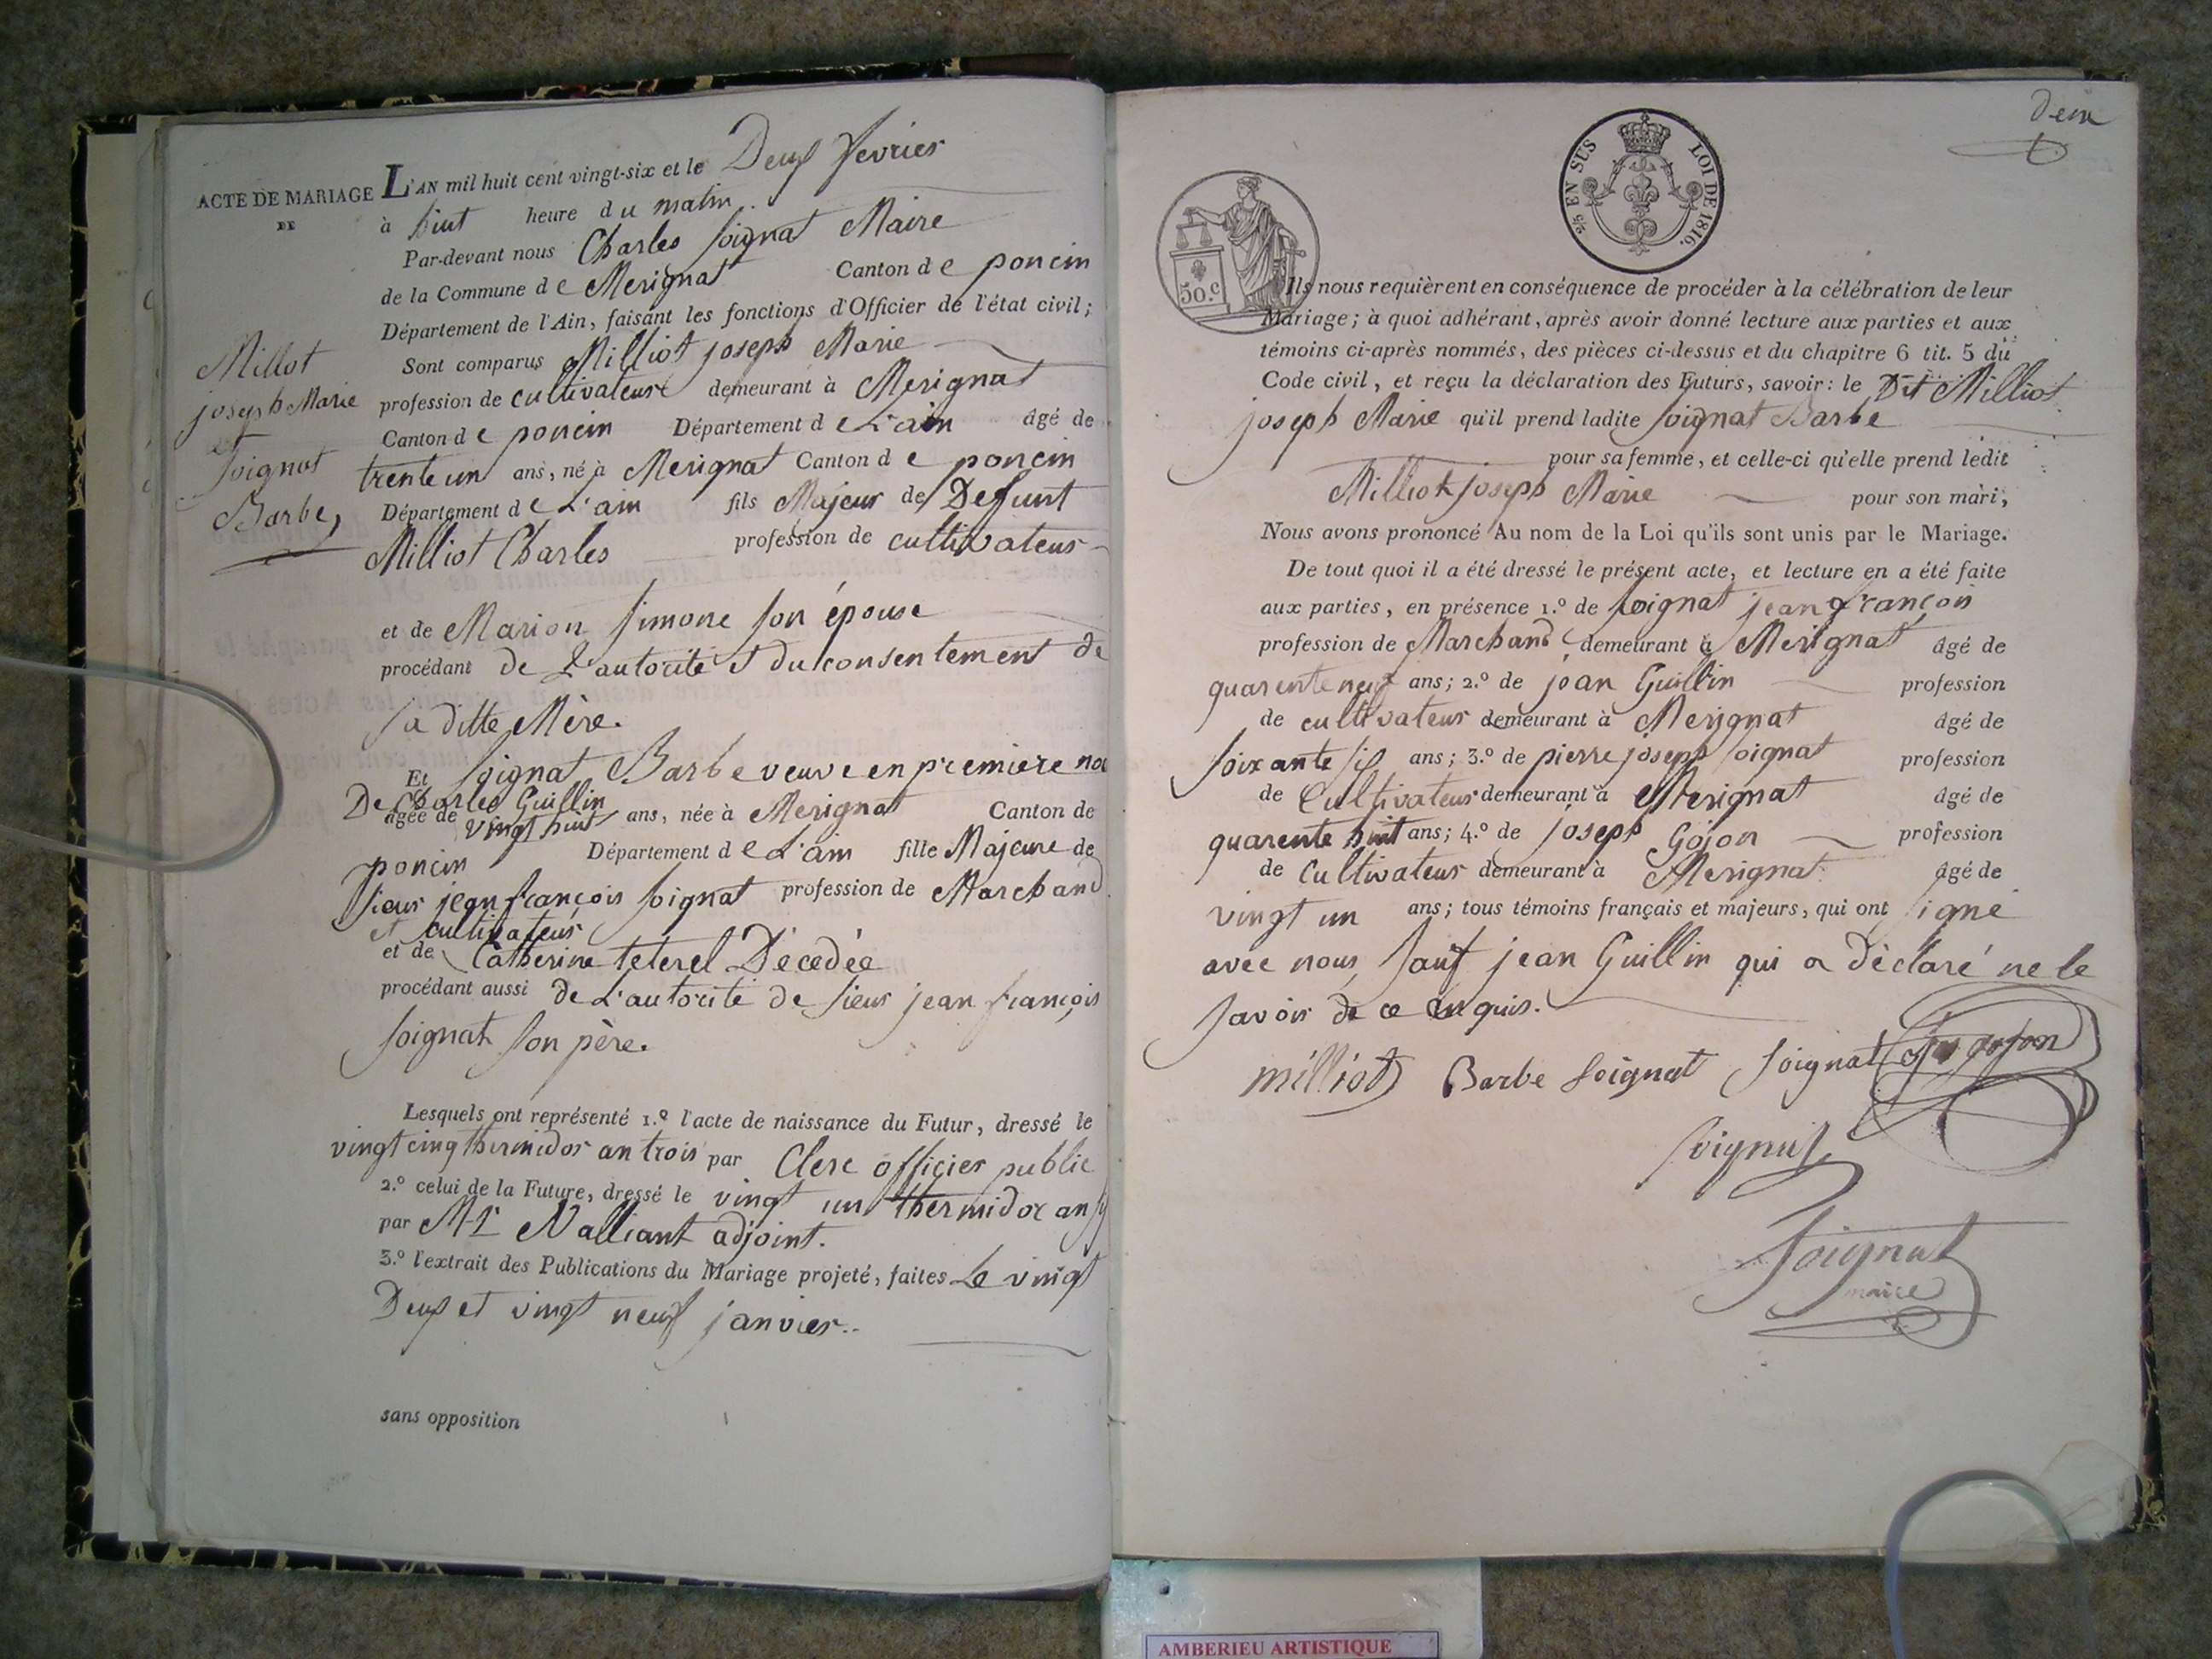 ACTE DE MARIAGE
DE
Millot
joseph Marie
et
Soignat
Barbe,
L'AN mil huit cent vingt-six et le Deux fevrier
à huit heure du matin
Par-devant nous Charles Soignat Maire
de la Commune de Merignat Canton de poncin
Département de l'Ain, faisant les fonctions d'Officier de l'état civil;
Sont comparus Milliot joseph Marie
profession de cultivateur demeurant à Merignat
Canton de poncin Département de L'ain âgé de
trente un ans, né à Merignat Canton de poncin
Département de L'ain fils Majeur de Defunt
Milliot Charles profession de cultivateur
et de Marion Simone son épouse
procédant de L'autorité et du consentement de
sa ditte Mère.
Et Soignat Barbe veuve en premiere noc
De Charles Guillin
agée de vingt huit ans, née à Merignat Canton de
poncin Département de L'ain fille Majeure de
sieur jean françois Soignat profession de Marchand
et cultivateur
et de Catherine teterel Décedée
procédant aussi de L'autorité de sieur jean françois
Soignat son père.
Lesquels ont représenté 1.º l'acte de naissance du Futur, dressé le
vingt cinq thermidor an trois par Clerc officier public
2.º celui de la Future, dressé le vingt un thermidor an
par Mr Nalliant adjoint.
3.º l'extrait des Publications du Mariage projeté, faites Le vingt
Deux et vingt neuf janvier..
sans opposition
deux
EN SUS LOI DE 1816.
50.c
Ils nous requièrent en conséquence de procéder à la célébration de leur
Mariage; à quoi adhérant, après avoir donné lecture aux parties et aux
témoins ci-après nommés, des pièces ci-dessus et du chapitre 6 tit. 5 du
Code civil, et reçu la déclaration des Futurs, savoir: le Dit Milliot
joseph Marie qu'il prend ladite Soignat Barbe
pour sa femme, et celle-ci qu'elle prend ledit
Milliot joseph Marie pour son mari,
Nous avons prononcé Au nom de la Loi qu'ils sont unis par le Mariage.
De tout quoi il a été dressé le présent acte, et lecture en a été faite
aux parties, en présence 1.º de Soignat jean françois
profession de Marchand demeurant à Merignat âgé de
quarente neuf ans; 2.º de jean Guillin profession
de cultivateur demeurant à Merignat âgé de
soixante six ans; 3.º de pierre joseph Soignat profession
de Cultivateur demeurant à Merignat âgé de
quarente huit ans; 4.º de joseph Gojon profession
de Cultivateur demeurant à Merignat âgé de
vingt un ans; tous témoins français et majeurs, qui ont signé
avec nous, sauf jean Guillin qui a déclaré ne le
savoir de ce enquis.
milliot Barbe Soignat Soignat gojon
Soignat
Soignat
maire
AMBERIEU ARTISTIQUE